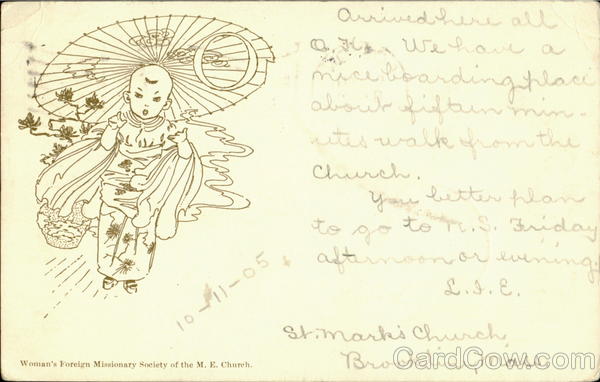 Arrived here all
O.K. We have a
nice boarding place
about fifteen min-
utes walk from the
Church.
You better plan
to go to N.S. Friday
afternoon or evening.
L.I.E.
St. Mark's Church
10-11-05
Woman's Foreign Missionary Society of the M. E. Church.
CardCow.com